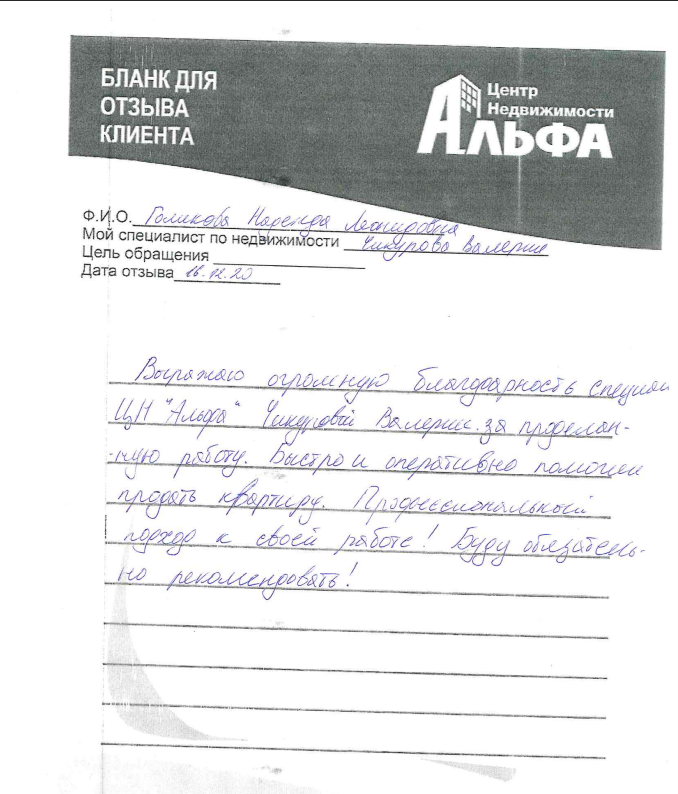 БЛАНК ДЛЯ
ОТЗЫВА
КЛИЕНТА
Центр
Недвижимости
АЛЬФА
Ф.И.О. Голикова Надежда Леонидовна
Мой специалист по недвижимости Чикурова Валерия
Цель обращения
Дата отзыва 16.12.20
Выражаю огромную благодарность специал
ЦН "Альфа" Чикуровой Валерии за проделан-
-ную работу. Быстро и оперативно помогли
продать квартиру. Профессиональный
подход к своей работе! Буду обязатель-
но рекомендовать!